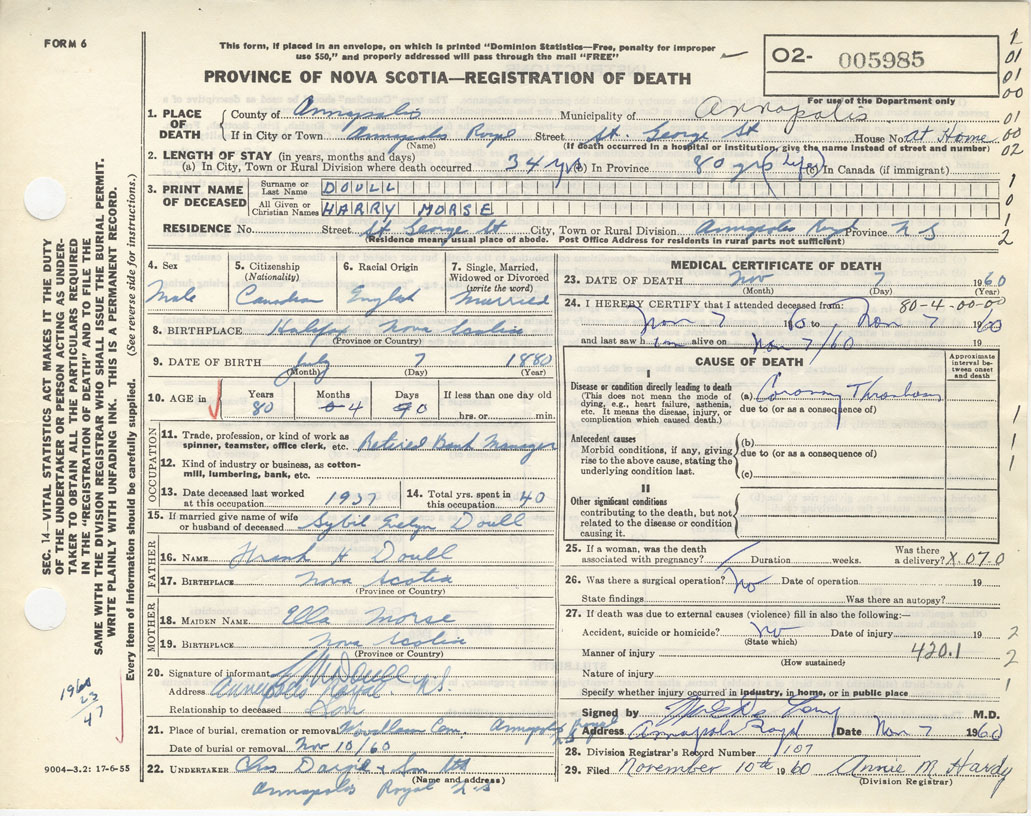 FORM 6
This form, if placed in an envelope, on which is printed "Dominion Statistics—Free, penalty for improper
use $50," and properly addressed will pass through the mail "FREE"
PROVINCE OF NOVA SCOTIA—REGISTRATION OF DEATH
02- 005985
For use of the Department only
1. PLACE OF DEATH
County of Annapolis Municipality of Annapolis
If in City or Town Annapolis Royal Street St. George St House No. at Home
(Name) (If death occurred in a hospital or institution, give the name instead of street and number)
2. LENGTH OF STAY (in years, months and days)
(a) In City, Town or Rural Division where death occurred 34 yrs (b) In Province 80 yrs (life) (c) In Canada (if immigrant)
3. PRINT NAME OF DECEASED
Surname or Last Name DOULL
All Given or Christian Names HARRY MORSE
RESIDENCE No. Street St George St City, Town or Rural Division Annapolis Royal Province N S
(Residence means usual place of abode. Post Office Address for residents in rural parts not sufficient)
4. Sex Male
5. Citizenship (Nationality) Canadian
6. Racial Origin English
7. Single, Married, Widowed or Divorced (write the word) Married
8. BIRTHPLACE Halifax Nova Scotia
(Province or Country)
9. DATE OF BIRTH July 7 1880
(Month) (Day) (Year)
10. AGE in Years 80 Months 4 Days 0 If less than one day old hrs. or min.
OCCUPATION
11. Trade, profession, or kind of work as spinner, teamster, office clerk, etc. Retired Bank Manager
12. Kind of industry or business, as cotton-mill, lumbering, bank, etc.
13. Date deceased last worked at this occupation 1937
14. Total yrs. spent in this occupation 40
15. If married give name of wife or husband of deceased Sybil Evelyn Doull
FATHER
16. NAME Frank H Doull
17. BIRTHPLACE Nova Scotia
(Province or Country)
MOTHER
18. MAIDEN NAME Ella Morse
19. BIRTHPLACE Nova Scotia
(Province or Country)
20. Signature of informant Doull
Address Annapolis Royal N.S.
Relationship to deceased Son
21. Place of burial, cremation or removal Woodlawn Cem. Annapolis Royal
Date of burial or removal Nov 10/60
22. UNDERTAKER Chas Dargie & Son Ltd
(Name and address)
Annapolis Royal N.S
MEDICAL CERTIFICATE OF DEATH
23. DATE OF DEATH Nov 7 1960
(Month) (Day) (Year)
24. I HEREBY CERTIFY that I attended deceased from: 80-4-00-00
Nov 7 60 to Nov 7 1960
and last saw him alive on Nov 7/60 19
CAUSE OF DEATH
Approximate interval between onset and death
I
Disease or condition directly leading to death
(This does not mean the mode of dying, e.g., heart failure, asthenia, etc. It means the disease, injury, or complication which caused death.)
(a) Coronary Thrombosis
due to (or as a consequence of)
Antecedent causes
Morbid conditions, if any, giving rise to the above cause, stating the underlying condition last.
(b)
due to (or as a consequence of)
(c)
II
Other significant conditions
contributing to the death, but not related to the disease or condition causing it.
25. If a woman, was the death associated with pregnancy? Duration weeks. Was there a delivery? X.07.0
26. Was there a surgical operation? No Date of operation 19
State findings Was there an autopsy?
27. If death was due to external causes (violence) fill in also the following:—
Accident, suicide or homicide? No Date of injury 19
(State which)
Manner of injury 420.1
(How sustained)
Nature of injury
Specify whether injury occurred in industry, in home, or in public place
Signed by M.D.
Address Annapolis Royal Date Nov 7 1960
28. Division Registrar's Record Number 107
29. Filed November 10th 1960 Annie M Hardy
(Division Registrar)
SEC. 14—VITAL STATISTICS ACT MAKES IT THE DUTY
OF THE UNDERTAKER OR PERSON ACTING AS UNDER-
TAKER TO OBTAIN ALL THE PARTICULARS REQUIRED
IN THE "REGISTRATION OF DEATH" AND TO FILE THE
SAME WITH THE DIVISION REGISTRAR WHO SHALL ISSUE THE BURIAL PERMIT.
WRITE PLAINLY WITH UNFADING INK. THIS IS A PERMANENT RECORD.
Every item of information should be carefully supplied. (See reverse side for instructions.)
1960
23
47
9004—3.2: 17-6-55
1
01
01
00
01
02
1
0
1
2
1
1
1
2
2
1